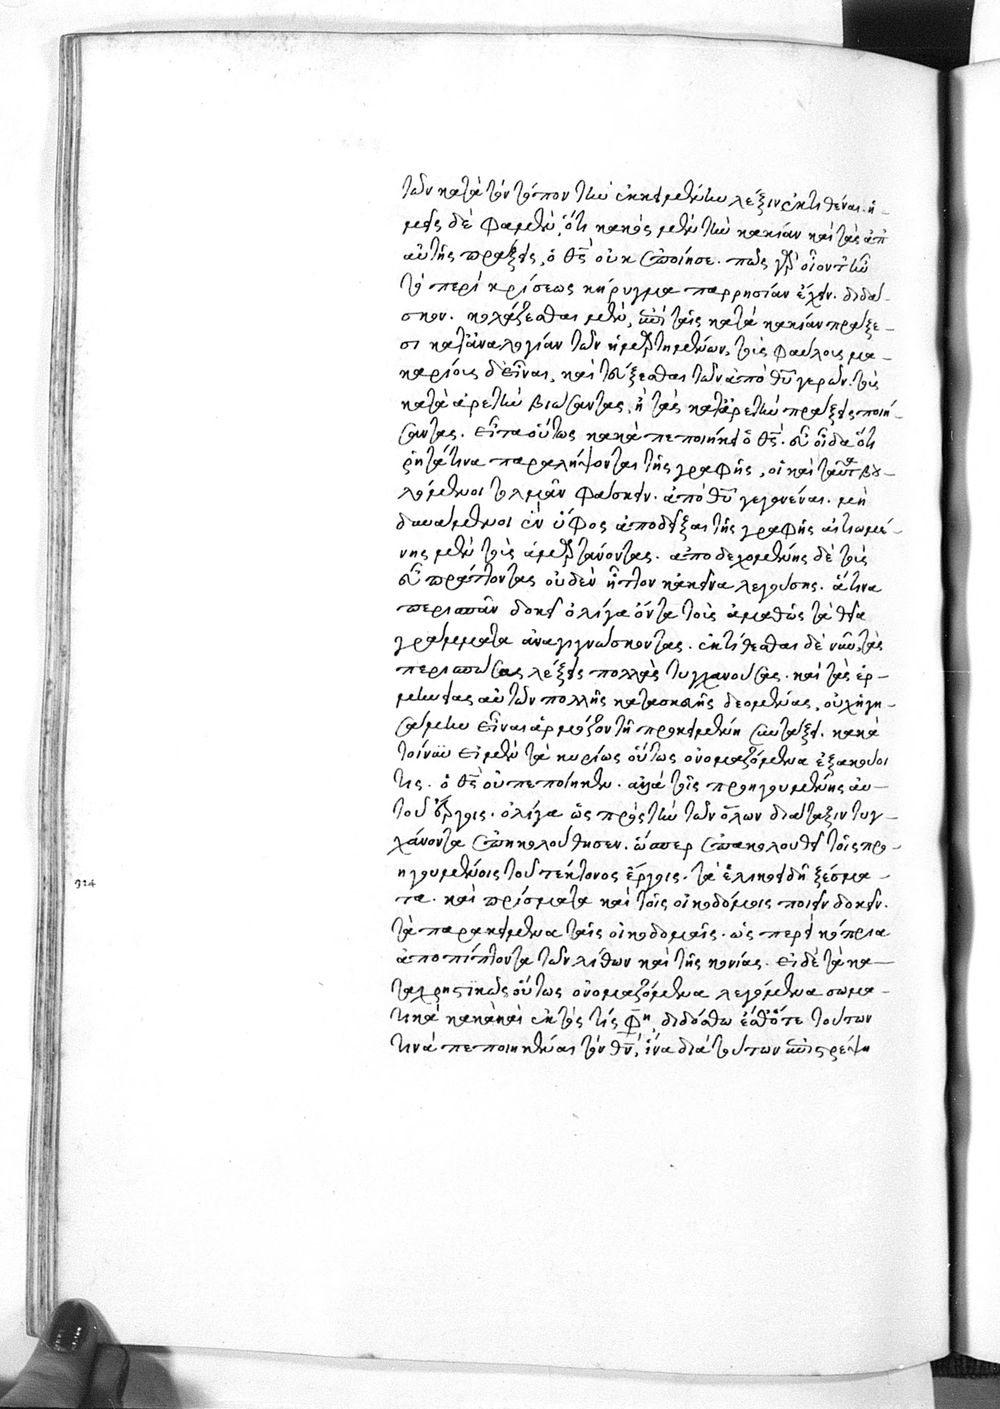 τῶν κατὰ τὸν τόπον τὴν ἐκκειμένην λέξιν ἐκτιθέναι. ἡ-
μεῖς δέ φαμεν, ὅτι κακὸς μὲν τὴν κακίαν καὶ τὰς ἀπ'
αὐτῆς πράξεις, ὁ θς οὐκ ἐποίησε. πῶς γὰρ οἷοντ' ἦν
τὸ περὶ κρίσεως κήρυγμα παρρησίαν ἔχειν. διδά-
σκον. κολάζεσθαι μὲν, ἐπὶ ταῖς κατὰ κακίαν πράξε-
σι κατἀναλογίαν τῶν ἡμαρτημένων, τοὺς φαύλους μα-
καρίους δ' εἶναι, καὶ τεύξεσθαι τῶν ἀπὸ θῦ γερῶν. τοὺς
κατὰ ἀρετὴν βιώσαντας, ἢ τὰς κατἀρετὴν πράξεις ποιή-
σαντας. εἶπα οὕτως κακὰ πεποιήκει ὁ θς. εὖ οἶδα ὅτι
ῥητά τινα παραλήψονται τῆς γραφῆς, οἱ καὶ ταῦτα βου-
λόμενοι τολμᾶν φάσκειν. ἀπὸ θῦ γεγονέναι. μὴ
δυνάμενοι ἓν ὕφος ἀποδεῖξαι τῆς γραφῆς αἰτιωμέ-
νης μὲν τοὺς ἁμαρτάνοντας. ἀποδεχομένης δὲ τοὺς
εὖ πράττοντας οὐδὲν ἧττον κἀκεῖνα λεγούσης. ἅτινα
περισπᾶν δοκεῖ ὀλίγα ὄντα τοὺς ἀμαθῶς τὰ θεῖα
γράμματα ἀναγιγνώσκοντας. ἐκτίθεσθαι δὲ νῦν, τὰς
περισπώσας λέξεις πολλὰς τυγχανούσας. καὶ τὰς ἑρ-
μηνείας αὐτῶν πολλῆς κατασκευῆς δεομένας, οὐχ ἡγη-
σάμην εἶναι ἁρμόζον τῇ προκειμένῃ συντάξει. κακὰ
τοίνυν εἰ μὲν τὰ κυρίως οὕτως ὀνομαζόμενα ἐξακούοι
τις. ὁ θς οὐ πεποίηκεν. ἀλλὰ τοῖς προηγουμένης αὐ-
τοῦ ἔργοις. ὀλίγα ὡς πρὸς τὴν τῶν ὅλων διάταξιν τυγ-
χάνοντα ἐπηκολούθησεν. ὥσπερ ἐπακολουθεῖ τοῖς προ-
ηγουμένοις τοῦ τέκτονος ἔργοις. τὰ ἑλικοειδῆ ξέσμα-
τα. καὶ πρίσματα καὶ τοῖς οἰκοδόμοις ποιεῖν δοκεῖν.
τὰ παρακείμενα ταῖς οἰκοδομαῖς. ὡς περεὶ κόπρια
ἀποπίπτοντα τῶν λίθων καὶ τῆς κονίας. εἰ δὲ τὰ κα-
ταχρηστϊκῶς οὕτως ὀνομαζόμενα λεγόμενα σωμα-
τικὰ κακὰ καὶ ἐκτός τις φη, διδόσθω ἔσθ' ὅτε τούτων
τινὰ πεποιηκέναι τὸν θν, ἵνα διὰ τούτων ἐπιστρέψῃ
924